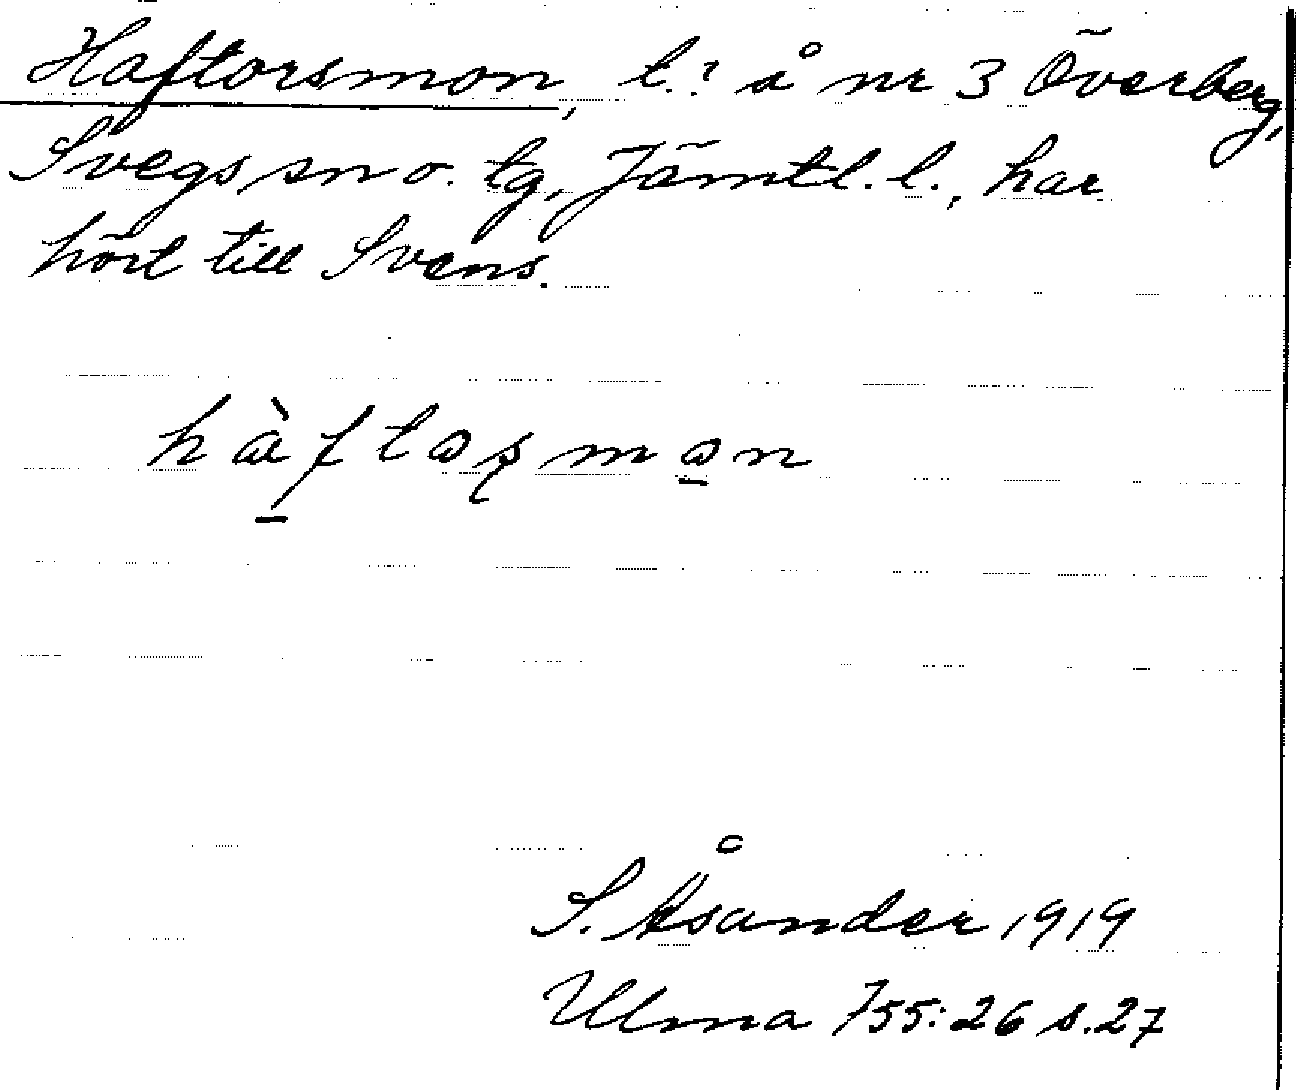 Haftorsmon, l.? å nr 3 Överberg,
Svegs sn o. tg, Jämtl. l., har
hört till Svens.
hàftəʂmən
S. Åsander 1919
Ulma 755:26 s.27